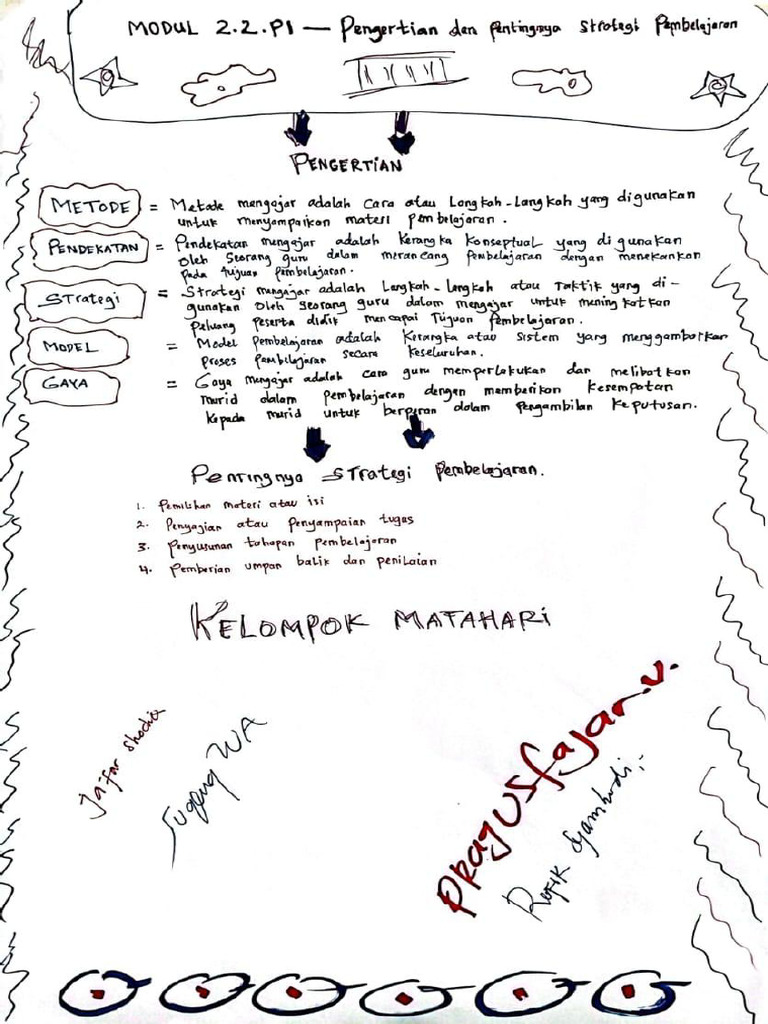 MODUL 2.2.P1 — Pengertian dan pentingnya strategi Pembelajaran
PENGERTIAN
METODE = Metode mengajar adalah cara atau Langkah-Langkah yang digunakan
untuk menyampaikan materi pembelajaran.
PENDEKATAN = Pendekatan mengajar adalah Kerangka Konseptual yang di gunakan
oleh Seorang guru dalam merancang Pembelajaran dengan menekankan
pada tujuan pembelajaran.
STrategi = Strategi mengajar adalah Langkah-Langkah atau Taktik yang di-
gunakan oleh seorang guru dalam mengajar untuk meningkatkan
peluang peserta didik mencapai Tujuan Pembelajaran.
MODEL = Model Pembelajaran adalah Kerangka atau Sistem yang menggambarkan
proses pembelajaran secara keseluruhan.
GAYA = Gaya mengajar adalah cara guru memperlakukan dan melibatkan
murid dalam pembelajaran dengan memberikan kesempatan
kepada murid untuk berperan dalam pengambilan keputusan.
Pentingnya STrategi Pembelajaran.
1. Pemilihan materi atau isi
2. Penyajian atau penyampaian tugas
3. Penyusunan tahapan pembelajaran
4. Pemberian umpan balik dan penilaian
KELOMPOK MATAHARI
Ja'far
Sugeng WA
PRAGUSfajar.V.
Rofik